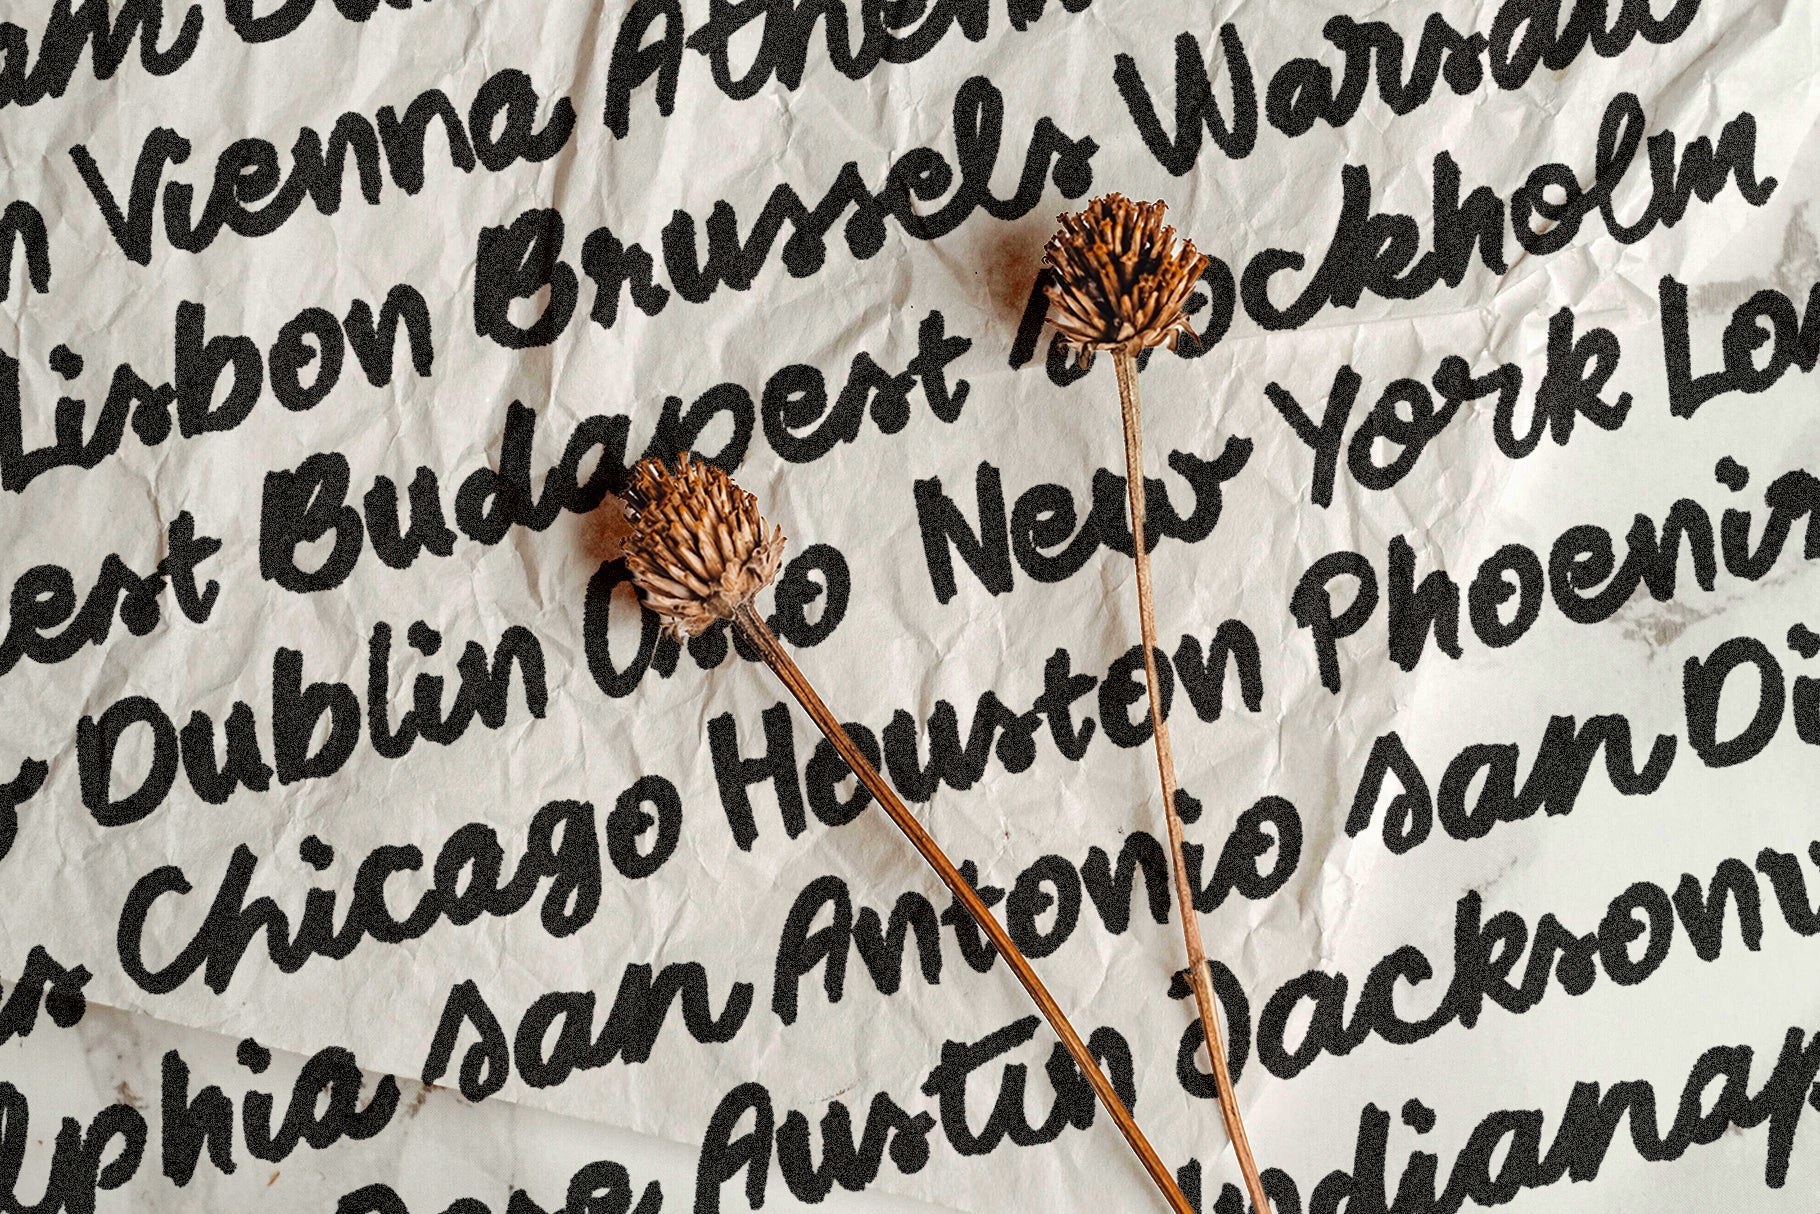 am
Vienna Athen
Lisbon Brussels Warsaw
est Budapest Stockholm
Dublin Oslo New York Lon
Chicago Houston Phoenix
lphia san Antonio san Di
ose Austin Jacksonv
Indianap